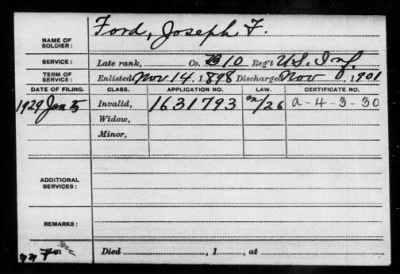 NAME OF SOLDIER: Ford, Joseph F.
SERVICE: Late rank, Co. B 10 Reg't U.S. Inf.
TERM OF SERVICE: Enlisted Nov 14, 1898 Discharged Nov 1901
DATE OF FILING. CLASS. APPLICATION NO. LAW. CERTIFICATE NO.
1929 Jan 5 Invalid, 1631793 a-4-3-30
Widow,
Minor,
ADDITIONAL SERVICES:
REMARKS:
Died , 1 , at